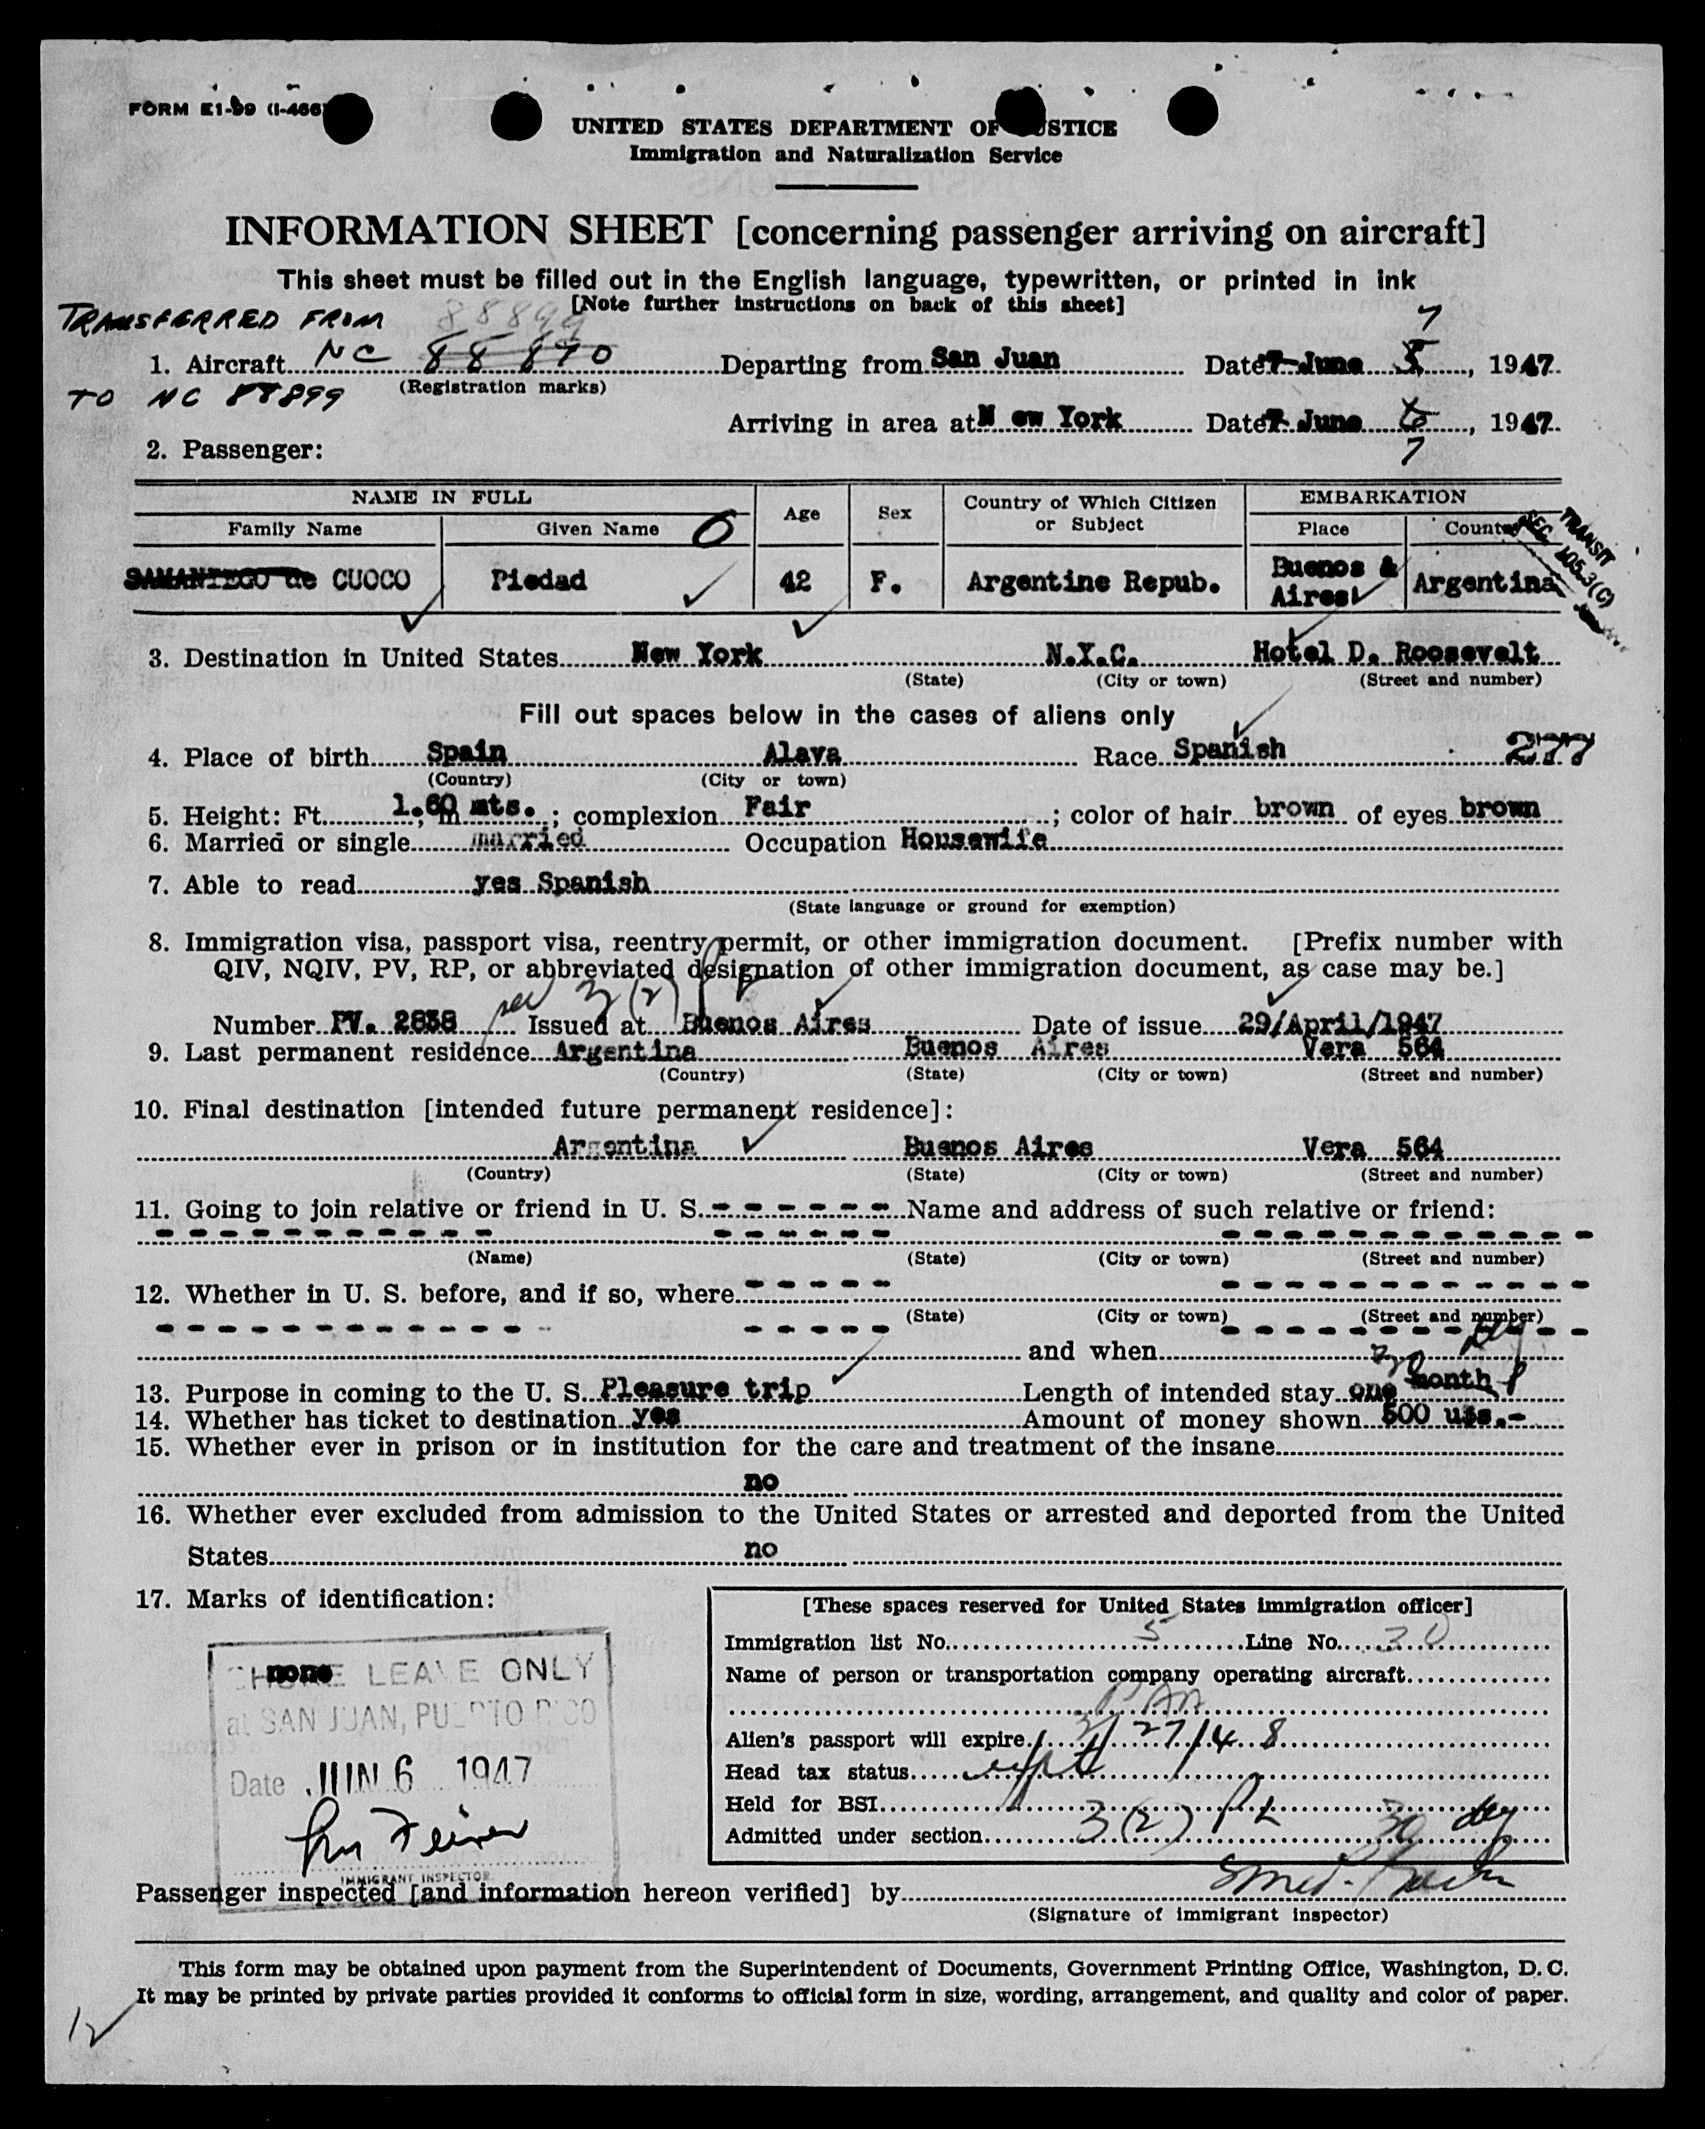 FORM E1-99 (I-466)
UNITED STATES DEPARTMENT OF JUSTICE
Immigration and Naturalization Service
INFORMATION SHEET [concerning passenger arriving on aircraft]
This sheet must be filled out in the English language, typewritten, or printed in ink
[Note further instructions on back of this sheet]
TRANSFERRED FROM 88899 7
1. Aircraft NC 88890 Departing from San Juan Date 7 June 5, 1947.
TO NC 88899 (Registration marks)
Arriving in area at N ew York Date 7 June 6, 1947.
7
2. Passenger:
NAME IN FULL Age Sex Country of Which Citizen or Subject EMBARKATION
Family Name Given Name O Place Country
TRANSIT
SEC. 105.3(C)
SAMANIEGO de CUOCO Piedad 42 F. Argentine Repub. Buenos Aires Argentina
3. Destination in United States New York N.Y.C. Hotel D. Roosevelt
(State) (City or town) (Street and number)
Fill out spaces below in the cases of aliens only
4. Place of birth Spain Alava Race Spanish 277
(Country) (City or town)
5. Height: Ft. 1.60 mts. ; complexion Fair ; color of hair brown of eyes brown
6. Married or single married Occupation Housewife
7. Able to read yes Spanish
(State language or ground for exemption)
8. Immigration visa, passport visa, reentry permit, or other immigration document. [Prefix number with
QIV, NQIV, PV, RP, or abbreviated designation of other immigration document, as case may be.]
sec 3(2)
Number PV. 2838 Issued at Buenos Aires Date of issue 29/April/1947
9. Last permanent residence Argentina Buenos Aires Vera 564
(Country) (State) (City or town) (Street and number)
10. Final destination [intended future permanent residence]:
Argentina Buenos Aires Vera 564
(Country) (State) (City or town) (Street and number)
11. Going to join relative or friend in U. S. - - - - - - Name and address of such relative or friend:
(Name) (State) (City or town) (Street and number)
12. Whether in U. S. before, and if so, where
(State) (City or town) (Street and number)
and when
30 dy
13. Purpose in coming to the U. S. Pleasure trip Length of intended stay one month
14. Whether has ticket to destination yes Amount of money shown 500 u$s.-
15. Whether ever in prison or in institution for the care and treatment of the insane
no
16. Whether ever excluded from admission to the United States or arrested and deported from the United
States no
17. Marks of identification:
none
SHORE LEAVE ONLY
at SAN JUAN, PUERTO RICO
Date JUN 6 1947
IMMIGRANT INSPECTOR
[These spaces reserved for United States immigration officer]
Immigration list No. 5 Line No. 30
Name of person or transportation company operating aircraft
PAA
Alien's passport will expire 3/27/48
Head tax status expt
Held for BSI
Admitted under section 3(2) PL 30 dy
Passenger inspected [and information hereon verified] by
(Signature of immigrant inspector)
This form may be obtained upon payment from the Superintendent of Documents, Government Printing Office, Washington, D. C.
It may be printed by private parties provided it conforms to official form in size, wording, arrangement, and quality and color of paper.
12